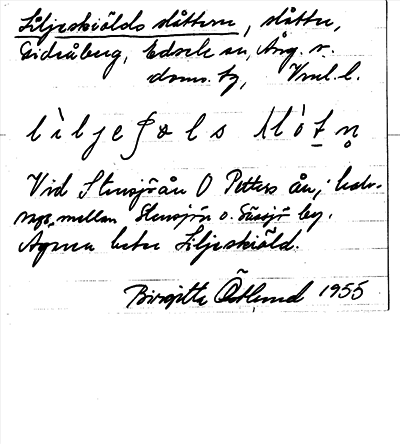 Liljeskiölds slåttern, slåtter,
Gideåberg, Edsele sn, Ång. v.
doms. tg, Vnl. l.
lìljeʃøls slòt̠n̥
Vid Stensjöån O Petters ån, i
mellan Stensjön o. by.
Ägaren heter Liljeskiöld.
Birgitta Östlund 1955